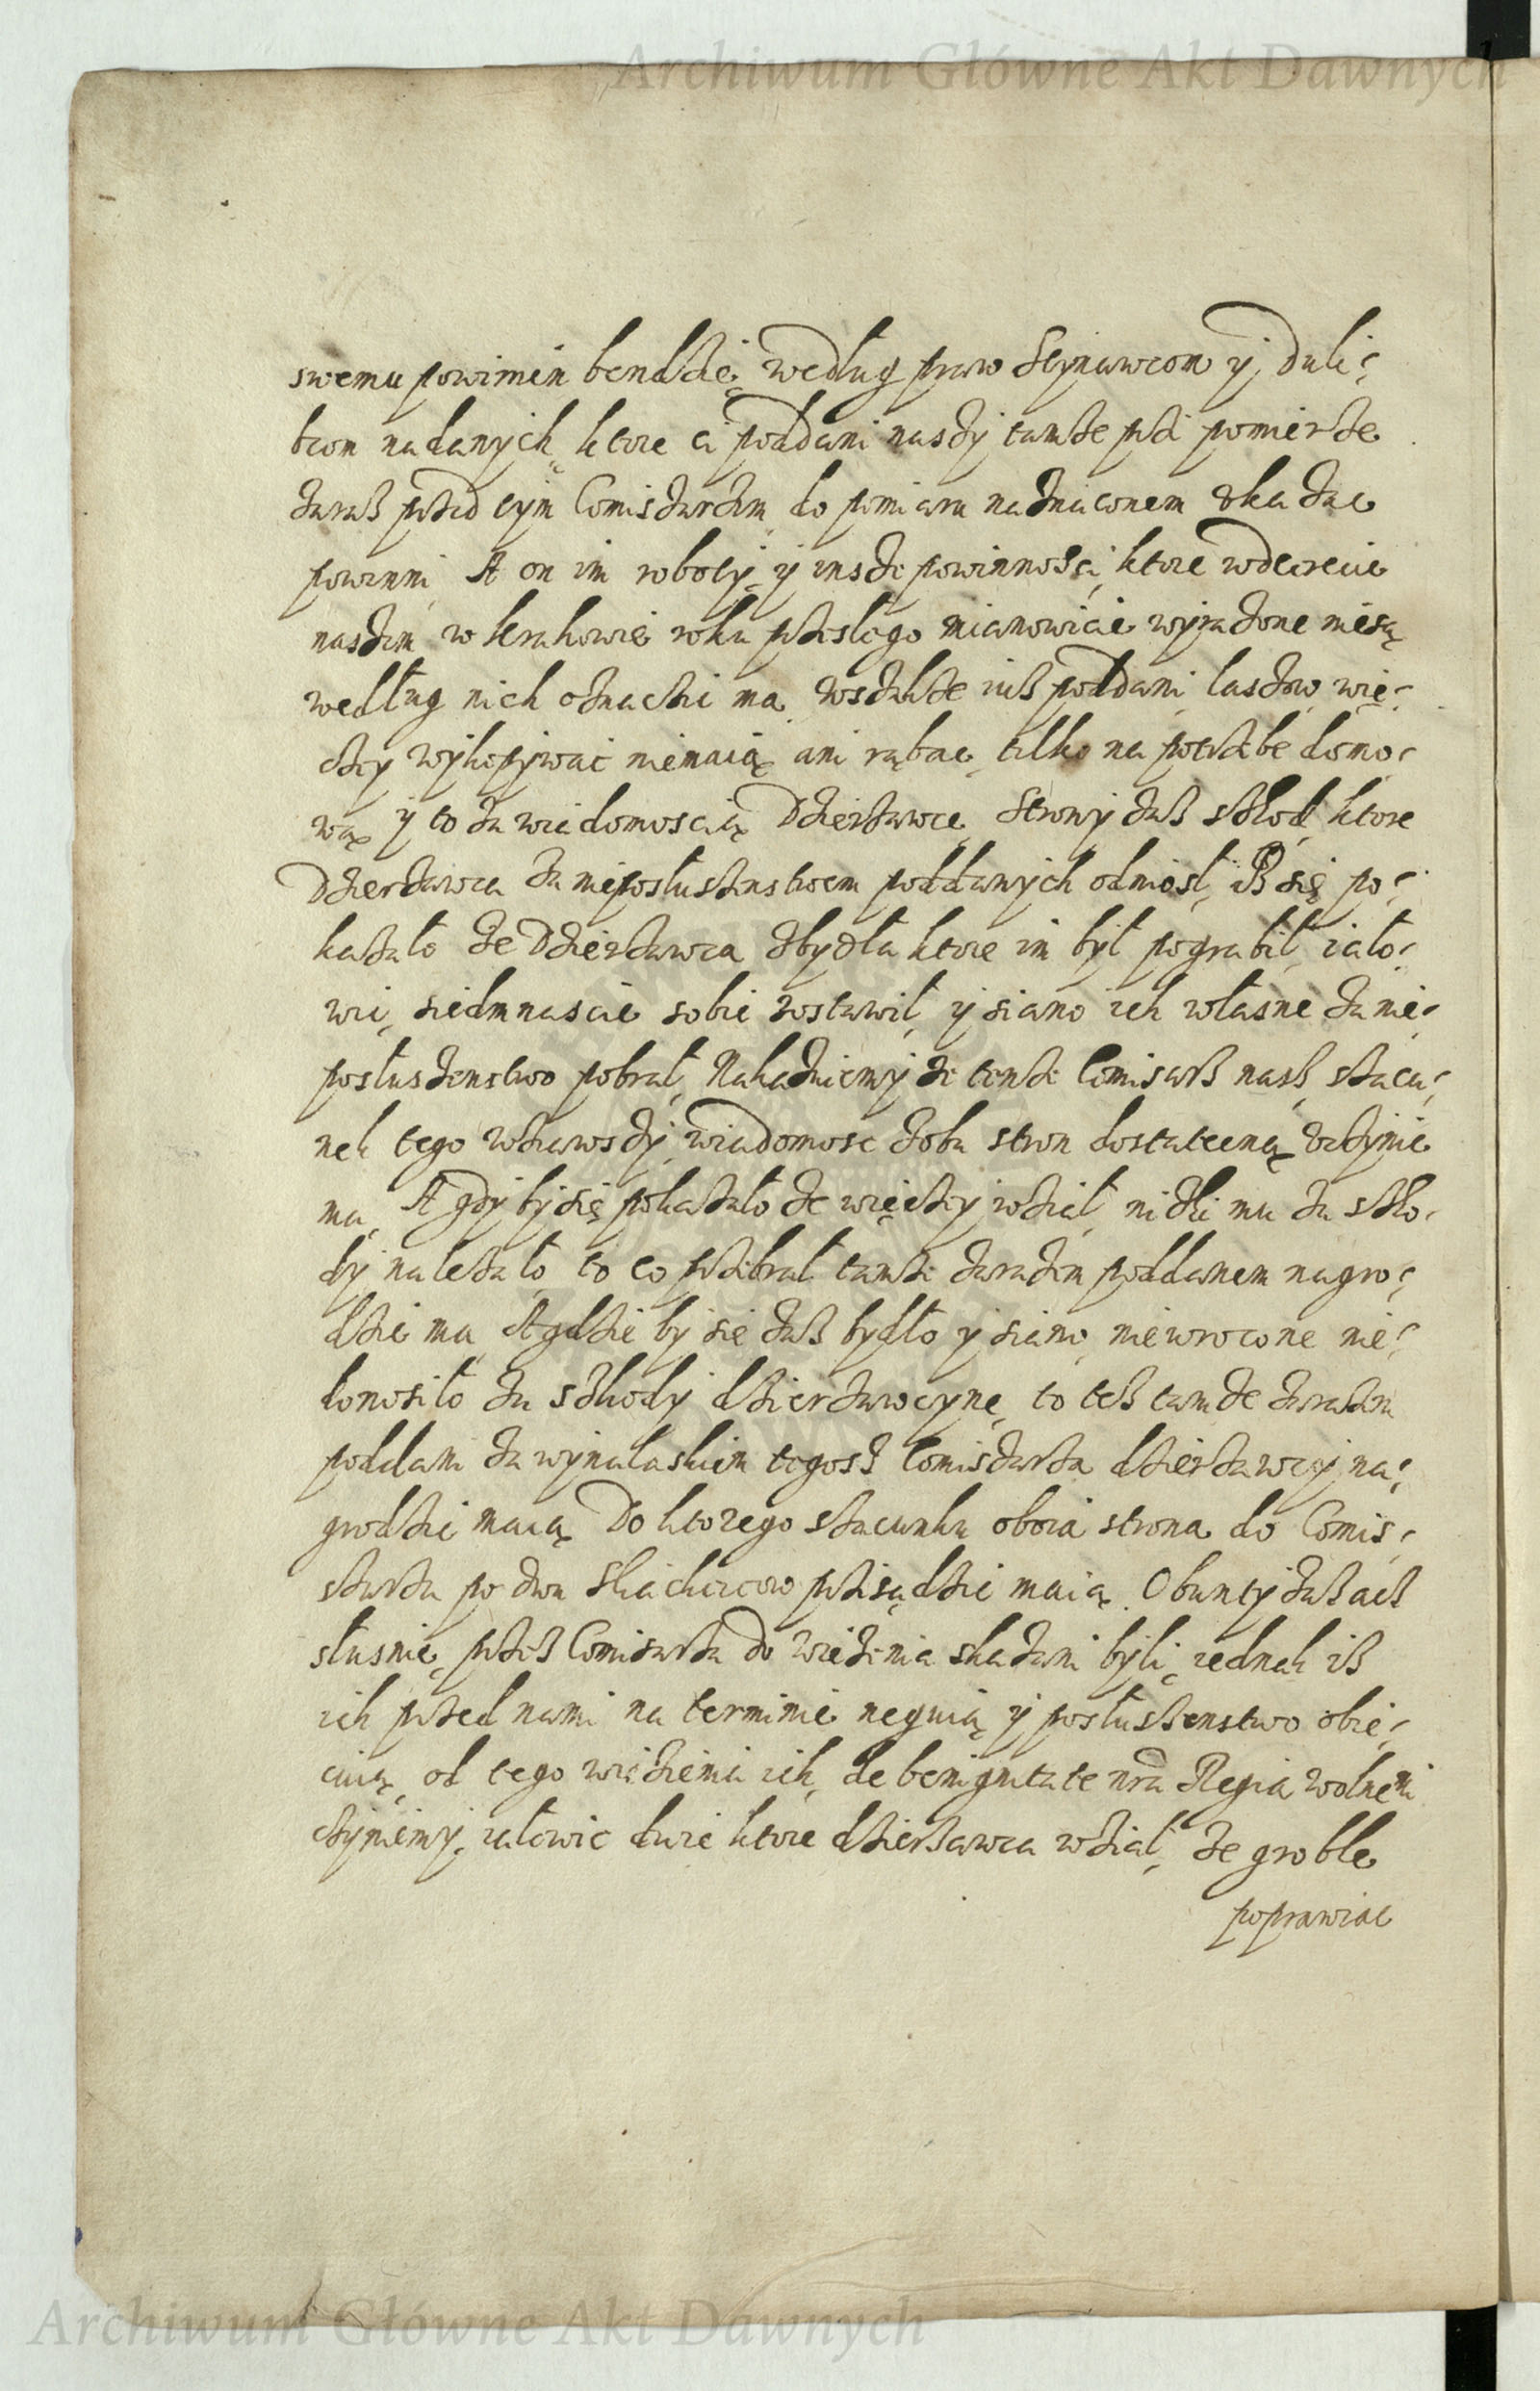 Archiwum Główne Akt Dawnych
swemu powinien bendzie, według praw Stynawcom y Duli-
bcom nadanych, ktore ci poddani naszy tamze przi pomierze
zaraß przed tym Comiszarzem do pomiaru naznaconem ukazac
powinni, A on im roboty y insze powinnosci, ktore w decrecie
naszem w Krakowie roku przeslego mianowicie wyrazone niesą
według nich oznaczic ma, wszakze iuß poddani lasow wię-
czy wykopywac niemaią ani rąbac, tilko na potrzebe domo-
wą y to za wiedomoscią Dzierzawce, Strony zaß szkod, ktore
Dzierzawca za nieposłuszenstwem poddanych odniosl, iß się po-
kazało ze Dzierzawca z bydła ktore im był pograbił, iało-
wic, siedmnascie sobie zostawił, y siano ich własne za nie-
posłuszenstwo pobrał, Nakazuiemy ze tenze Comisarß nasß szacu-
nek tego wziąwszy wiadomosc z obu stron dostateczną uczynic
ma, A gdy by się pokazało ze więczy wział, nizli mu za szko-
dy nalezało, to co przebrał tamze zarazem poddanem nagro-
dzic ma, A gdzie by się zaß bydło y siano niewrocone nie-
donosiło za szkody dzierzawcyne, to teß tamze zarazem
poddani za wynalaskiem tegosz Comiszarza dzierzawcy na-
grodzic maią, Do ktorego szacunku oboia strona do Comis-
szarza po dwu Slachcicow przisądzic maią. Obuncy zaß acz
słusnie, przeß Comisarza do więzienia skazani byli, iednak iß
ich przed nami na terminie neguią y posłuszenstwo obie-
cuią, od tego więzienia ich, de benignitate nra Regia wolnemi
czyniemy, iałowic dwie ktore dzierzawca wział, ze groble
poprawiac
Archiwum Główne Akt Dawnych